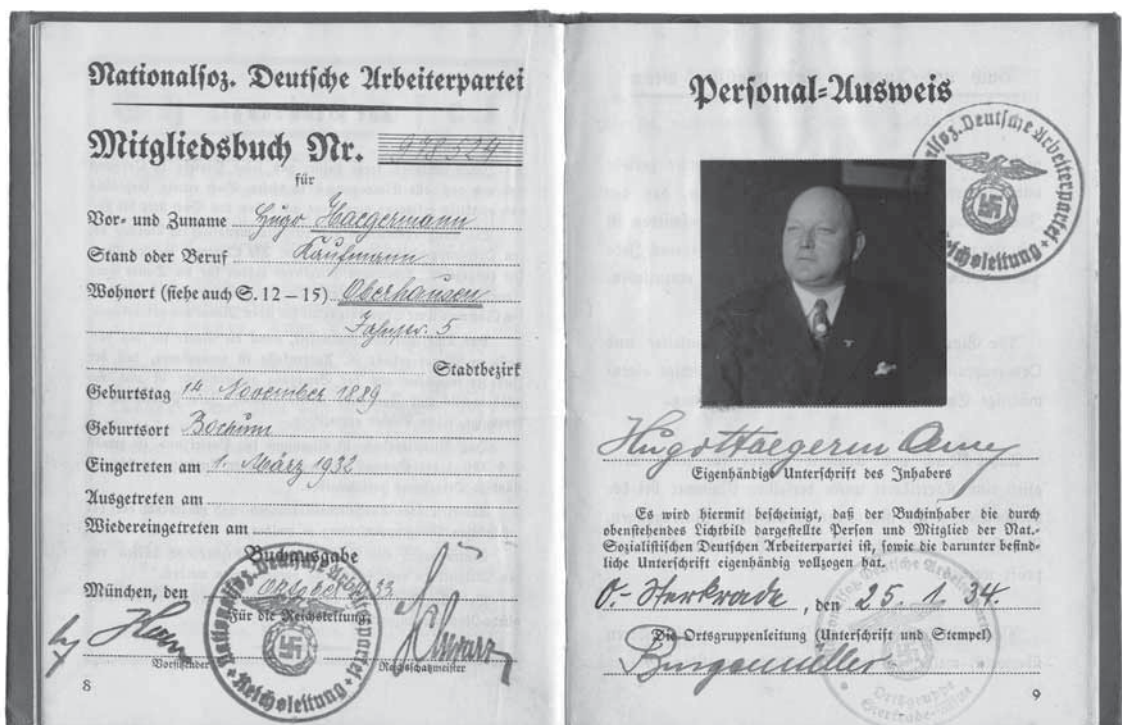 Nationalsoz. Deutsche Arbeiterpartei
Mitgliedsbuch Nr. 978529
für
Vor- und Zuname Hugo Haegermann
Stand oder Beruf Kaufmann
Wohnort (siehe auch S. 12 – 15) Oberhausen
5
Stadtbezirk
Geburtstag 14. November 1889
Geburtsort Bochum
Eingetreten am 1. März 1932
Ausgetreten am
Wiedereingetreten am
Buchausgabe
München, den Oktober 33
Für die Reichsleitung:
Vorsitzender Reichsschatzmeister
Nationalsoz. Deutsche Arbeiterpartei
Reichsleitung
8
Personal-Ausweis
Nationalsoz. Deutsche Arbeiterpartei
Reichsleitung
Hugo Haegermann
Eigenhändige Unterschrift des Inhabers
Es wird hiermit bescheinigt, daß der Buchinhaber die durch
obenstehendes Lichtbild dargestellte Person und Mitglied der Nat.-
Sozialistischen Deutschen Arbeiterpartei ist, sowie die darunter befind-
liche Unterschrift eigenhändig vollzogen hat.
O.-Sterkrade, den 25. 1. 34.
Die Ortsgruppenleitung (Unterschrift und Stempel)
Ortsgruppe
9